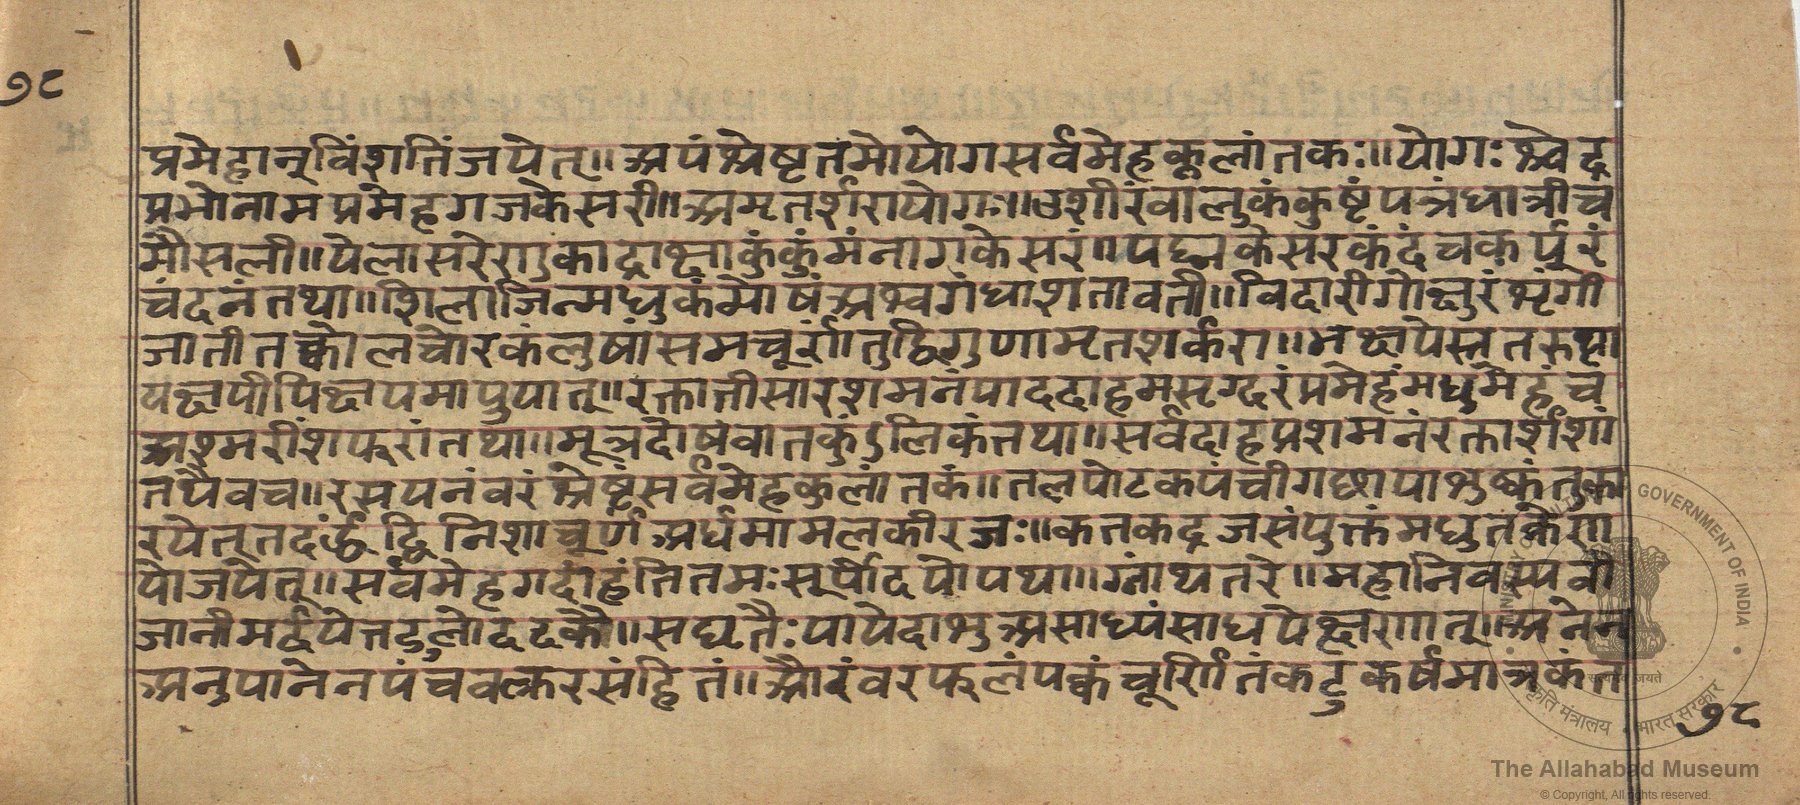 ७८
प्रमेहान्विंशतिंजयेत्॥अयंश्रेष्टतमोयोगसर्वमेहकुलांतकः॥योगःश्चेंद्र
प्रभोनामप्रमेहगजकेसरी॥अमृतर्शरायोगः॥उशीरंवालुकंकुष्टंपत्रंधात्रीच
मौसली॥येलासरेणुकाद्राक्षाकुंकुंमंनागकेसरं॥पद्मकेसरकंदंचकर्पूरं
चंदनंतथा॥शिलाजिन्मधुकंमोषंअश्वगंधाशतावती॥विदारीगोक्षुरंभृंगी
जातीतक्कोलचोरकं समचूर्णातुद्विगुणामृतशर्करा॥
रक्तातीसारशमनंपाददाहमसृग्दरंप्रमेहंमधुमेहंच
अश्मरींशर्करांतथा॥मूत्रदोषंवातकुंडलिकंतथा॥सर्वदाहप्रशमनंरक्तार्शशां
तथैवच॥रसयनंवरंश्रेष्टंसर्वमेहकुलांतकं॥तलपोटकपंचीगछायाशुष्कंतुका
रयेत्तदर्द्धंद्विनिशाचूर्णंअर्धमामलकीरजः॥कतकद्रजसंयुक्तंमधुतक्रेण
योजयेत्॥सर्वमेहगदांहंतितमःसूर्योदयोयथा॥ग्रंथातरे॥महानिंवस्यवी
जानीमर्द्दयेत्तंदुलोदकैः॥सघृतैः असाध्यंसाधयेक्षणात्॥अनेन
अनुपानेनपंचवक्तरसंहितं॥औदंवरफलंपक्वंचूर्णितंकटुकर्षमात्रकंत
७८
MINISTRY OF CULTURE GOVERNMENT OF INDIA
सत्यमेव जयते
संस्कृति मंत्रालय भारत सरकार
The Allahabad Museum
© Copyright, All rights reserved.